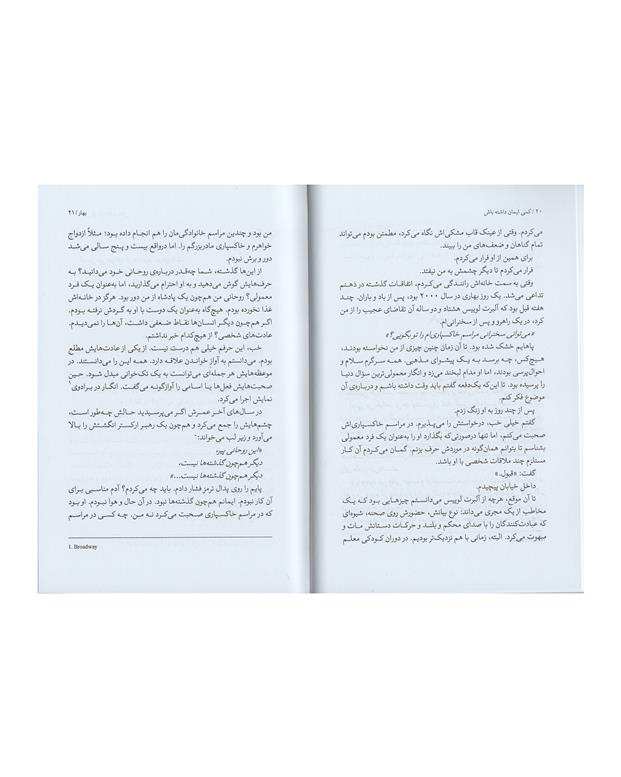 ۲۰ / کمی ایمان داشته باش
می‌کردم. وقتی از عینک قاب مشکی‌اش نگاه می‌کرد، مطمئن بودم می‌تواند
تمام گناهان و ضعف‌های من را ببیند.
برای همین از او فرار می‌کردم.
فرار می‌کردم تا دیگر چشمش به من نیفتد.
وقتی به سمت خانه‌اش رانندگی می‌کردم، اتفاقات گذشته در ذهنم
تداعی می‌شد. یک روز بهاری در سال ۲۰۰۰ بود، پس از باد و باران. چند
هفته قبل بود که آلبرت لوییس هشتاد و دو ساله آن تقاضای عجیب را از من
کرد، در یک راهرو و پس از سخنرانی‌ام.
«می‌توانی سخنرانی مراسم خاکسپاری‌ام را تو بگویی؟»
پاهایم خشک شده بود. تا آن زمان چنین چیزی از من نخواسته بودند،
هیچ‌کس، چه برسد به یک پیشوای مذهبی. همه سرگرم سلام و
احوال‌پرسی بودند، اما او مدام لبخند می‌زد و انگار معمولی‌ترین سؤال دنیا
را پرسیده بود. تا این‌که یک‌دفعه گفتم باید وقت داشته باشم و درباره‌ی آن
موضوع فکر کنم.
پس از چند روز به او زنگ زدم.
گفتم خیلی خب، درخواستش را می‌پذیرم. در مراسم خاکسپاری‌اش
صحبت می‌کنم، اما تنها درصورتی‌که بگذارد او را به‌عنوان یک فرد معمولی
بشناسم تا بتوانم همان‌گونه در موردش حرف بزنم. گمان می‌کردم آن کار
مستلزم چند ملاقات شخصی با او باشد.
گفت: «قبول.»
داخل خیابان پیچیدم.
تا آن موقع، هرچه از آلبرت لوییس می‌دانستم چیزهایی بود که یک
مخاطب از یک مجری می‌داند: نوع بیانش، حضورش روی صحنه، شیوه‌ای
که عبادت‌کنندگان را با صدای محکم و بلند و حرکات دستانش مات و
مبهوت می‌کرد. البته، زمانی با هم نزدیک‌تر بودیم. در دوران کودکی معلم
بهار / ۲۱
من بود و چندین مراسم خانوادگی‌مان را هم انجام داده بود؛ مثلاً ازدواج
خواهرم و خاکسپاری مادربزرگم را. اما درواقع بیست و پنج سالی می‌شد
دور و برش نبودم.
از این‌ها گذشته، شما چه‌قدر درباره‌ی روحانی خود می‌دانید؟ به
حرف‌هایش گوش می‌دهید و به او احترام می‌گذارید، اما به‌عنوان یک فرد
معمولی؟ روحانی من همچون یک پادشاه از من دور بود. هرگز در خانه‌اش
غذا نخورده بودم. هیچ‌گاه به‌عنوان یک دوست با او به گردش نرفته بودم.
اگر هم‌چون دیگر انسان‌ها نقاط ضعفی داشت، آن‌ها را نمی‌دیدم.
عادت‌های شخصی؟ از هیچ‌کدام خبر نداشتم.
خب، این حرفم خیلی هم درست نیست. از یکی از عادت‌هایش مطلع
بودم. می‌دانستم به آواز خواندن علاقه دارد. همه این را می‌دانستند. در
موعظه‌هایش هر جمله‌ای می‌توانست به یک تک‌خوانی مبدل شود. حین
صحبت‌هایش فعل‌ها یا اسامی را آوازگونه می‌گفت. انگار در برادوی¹
نمایش اجرا می‌کرد.
در سال‌های آخر عمرش اگر می‌پرسیدید حالش چه‌طور است،
چشم‌هایش را جمع می‌کرد و هم‌چون یک رهبر ارکستر انگشتش را بالا
می‌آورد و زیر لب می‌خواند:
«این روحانی پیر؛
دیگر هم‌چون گذشته‌ها نیست،
دیگر هم‌چون گذشته‌ها نیست...»
پایم را روی پدال ترمز فشار دادم. باید چه می‌کردم؟ آدم مناسبی برای
آن کار نبودم. ایمانم هم‌چون گذشته‌ها نبود. در آن حال و هوا نبودم. او بود
که در مراسم خاکسپاری صحبت می‌کرد نه من. چه کسی در مراسم
1. Broadway